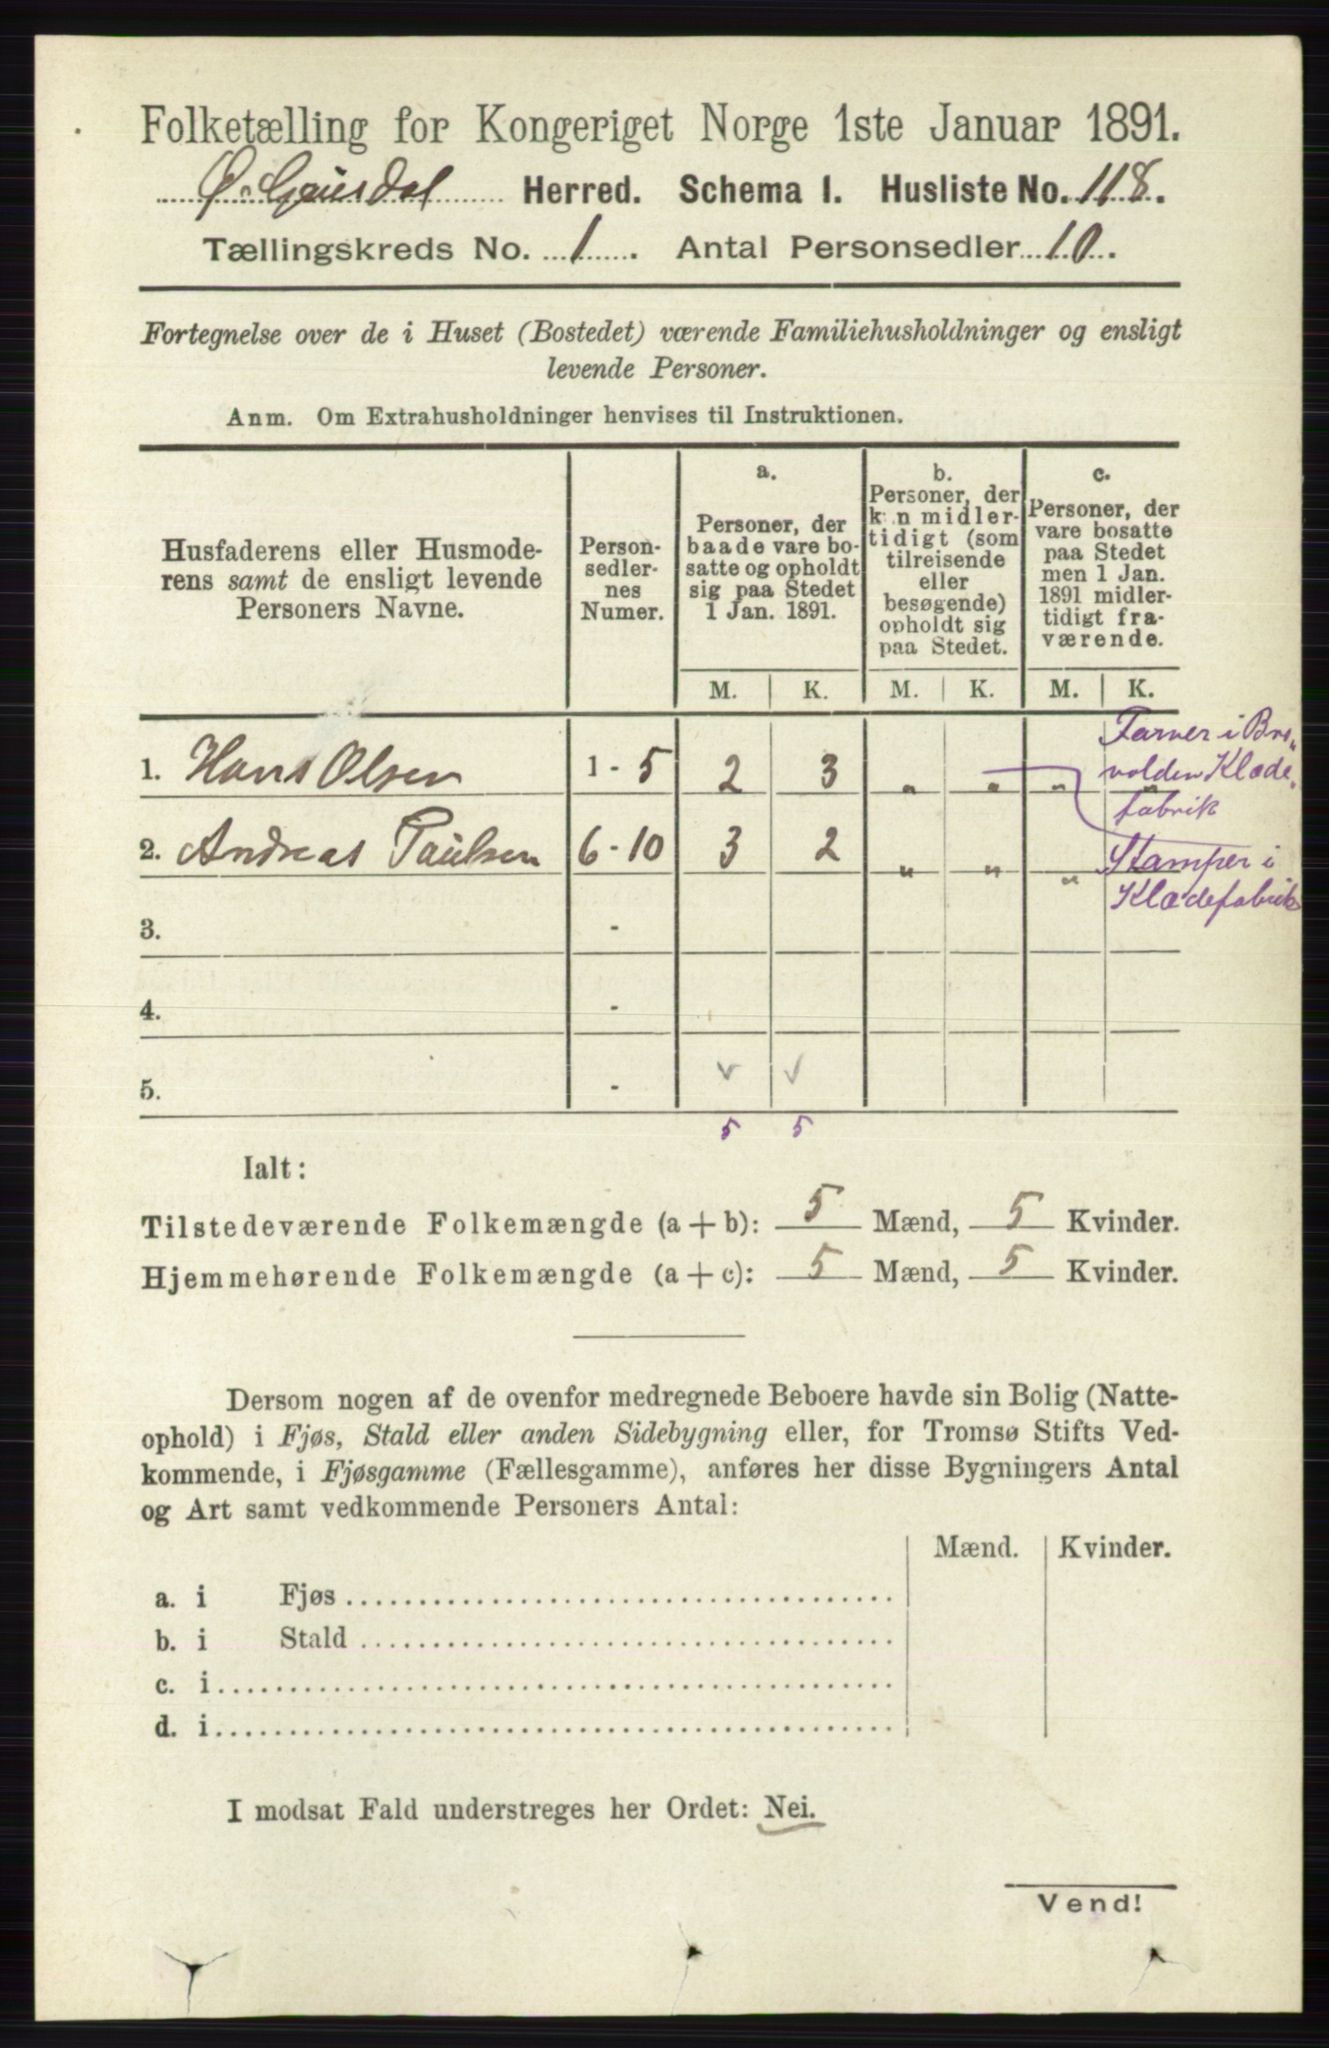 Folketælling for Kongeriget Norge 1ste Januar 1891.
Ø. Gausdal Herred. Schema 1. Husliste No. 118.
Tællingskreds No. 1. Antal Personsedler 10.
Fortegnelse over de i Huset (Bostedet) værende Familiehusholdninger og ensligt
levende Personer.
Anm. Om Extrahusholdninger henvises til Instruktionen.
Husfaderens eller Husmode-
rens samt de ensligt levende
Personers Navne.
Person-
sedler-
nes
Numer.
a.
Personer, der
baade vare bo-
satte og opholdt
sig paa Stedet
1 Jan. 1891.
b.
Personer, der
kun midler-
tidigt (som
tilreisende
eller
besøgende)
opholdt sig
paa Stedet.
c.
Personer, der
vare bosatte
paa Stedet
men 1 Jan.
1891 midler-
tidigt fra-
værende.
M. K. M. K. M. K.
1. Hans Olsen 1 - 5 2 3 " " " "
Farver i Bre-
volden Klæde-
fabrik
2. Andreas Paulsen 6 - 10 3 2 " " "
Stamper i
Klædefabrik
3. -
4. -
5. -
5 5
Ialt:
Tilstedeværende Folkemængde (a + b): 5 Mænd, 5 Kvinder.
Hjemmehørende Folkemængde (a + c): 5 Mænd, 5 Kvinder.
Dersom nogen af de ovenfor medregnede Beboere havde sin Bolig (Natte-
ophold) i Fjøs, Stald eller anden Sidebygning eller, for Tromsø Stifts Ved-
kommende, i Fjøsgamme (Fællesgamme), anføres her disse Bygningers Antal
og Art samt vedkommende Personers Antal:
Mænd. Kvinder.
a. i Fjøs
b. i Stald
c. i
d. i
I modsat Fald understreges her Ordet: Nei.
Vend!